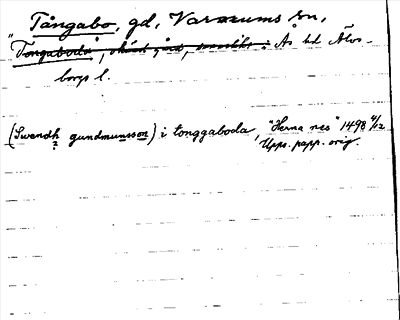 Tångabo, gd, Varnums sn,
Ås hd Älvs-
borgs l.
(Swendh gundmunsson) i tonggaboda, "Herna nes" 1498 4/12
?
Upps. papp. orig.